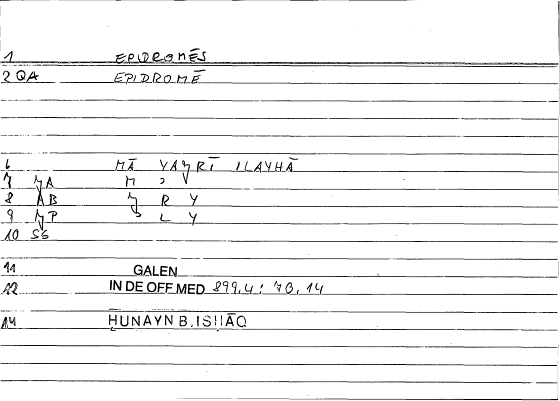 1 EPIDROMĒS
2 QA EPIDROMĒ
6 MĀ YAǦRĪ ILAYHĀ
7 ǦA M ʾ
8 AB Ǧ R Y
9 ǦP ʾ L Y
10 SS
11 GALEN
12 IN DE OFF.MED 899,4: 70,14
14 ḤUNAYN B.ISḤĀQ